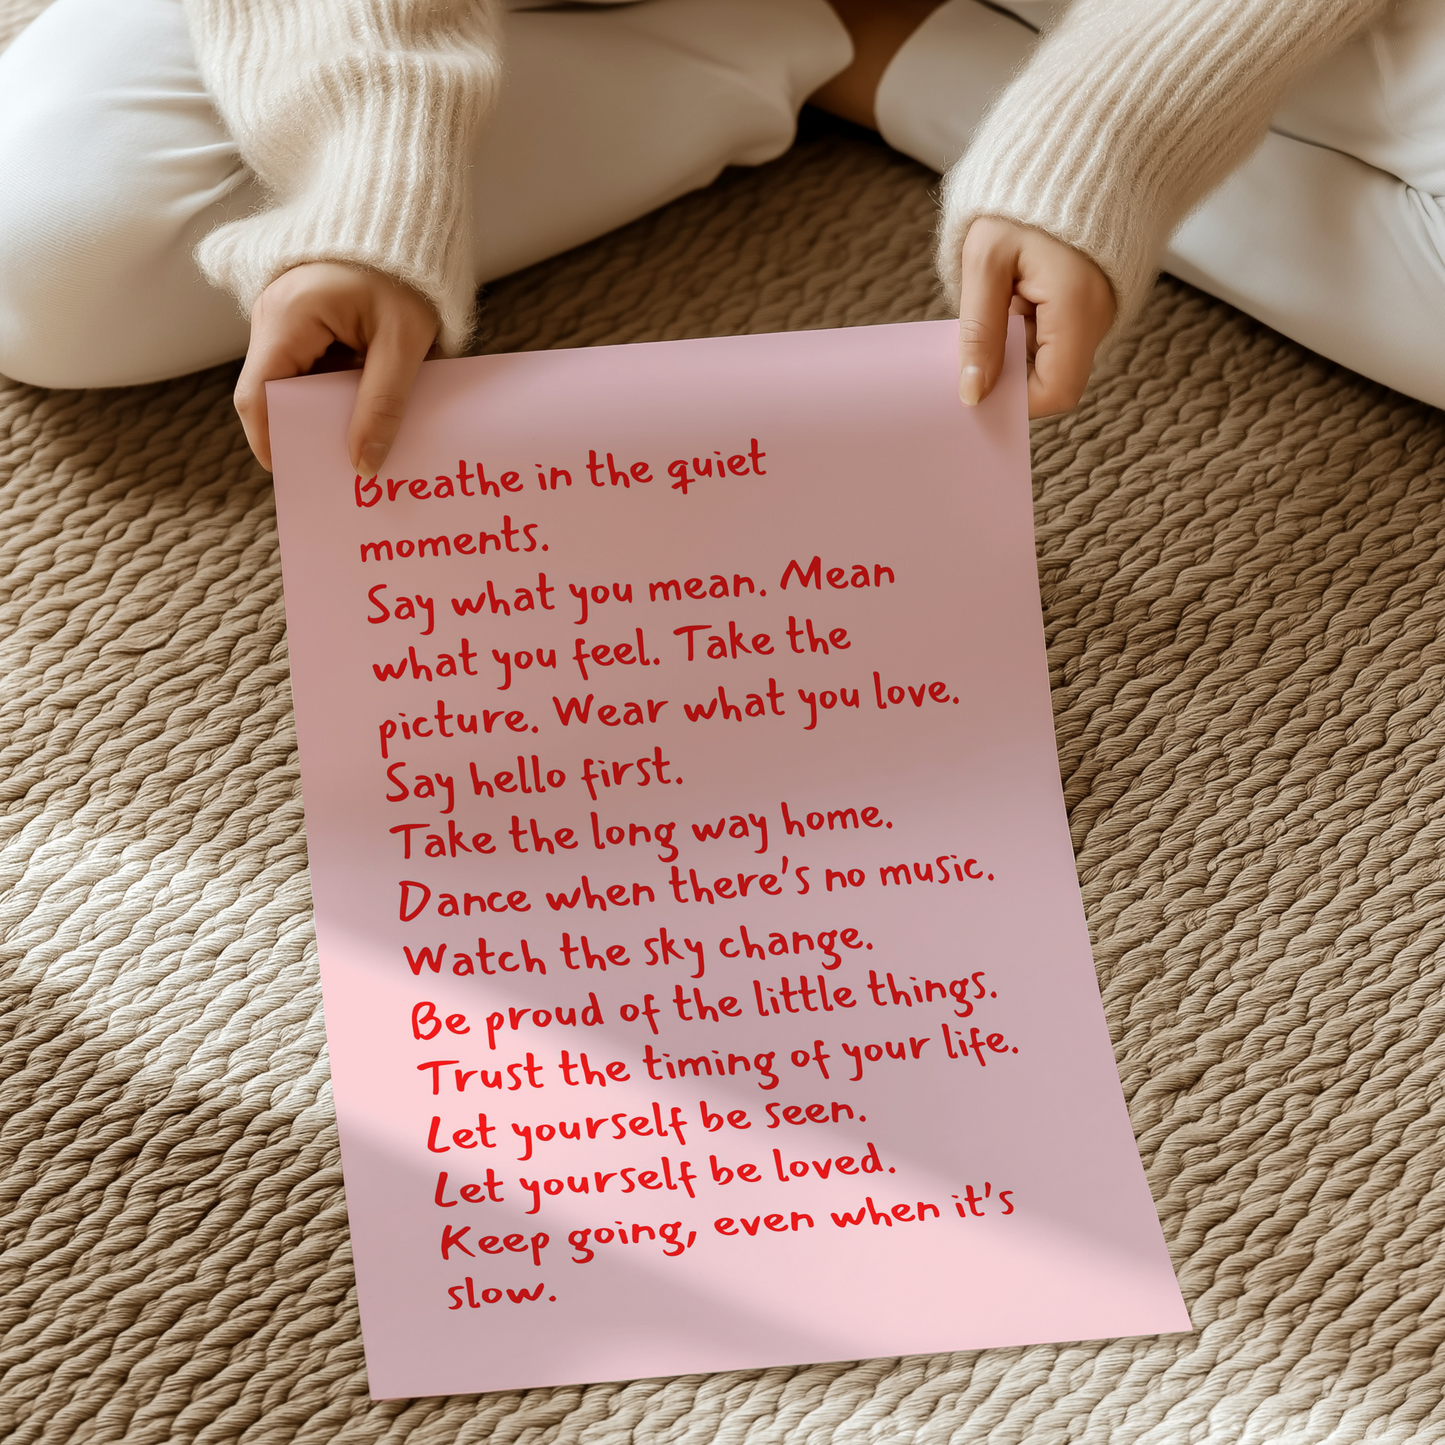 Breathe in the quiet
moments.
Say what you mean. Mean
what you feel. Take the
picture. Wear what you love.
Say hello first.
Take the long way home.
Dance when there's no music.
Watch the sky change.
Be proud of the little things.
Trust the timing of your life.
Let yourself be seen.
Let yourself be loved.
Keep going, even when it's
slow.